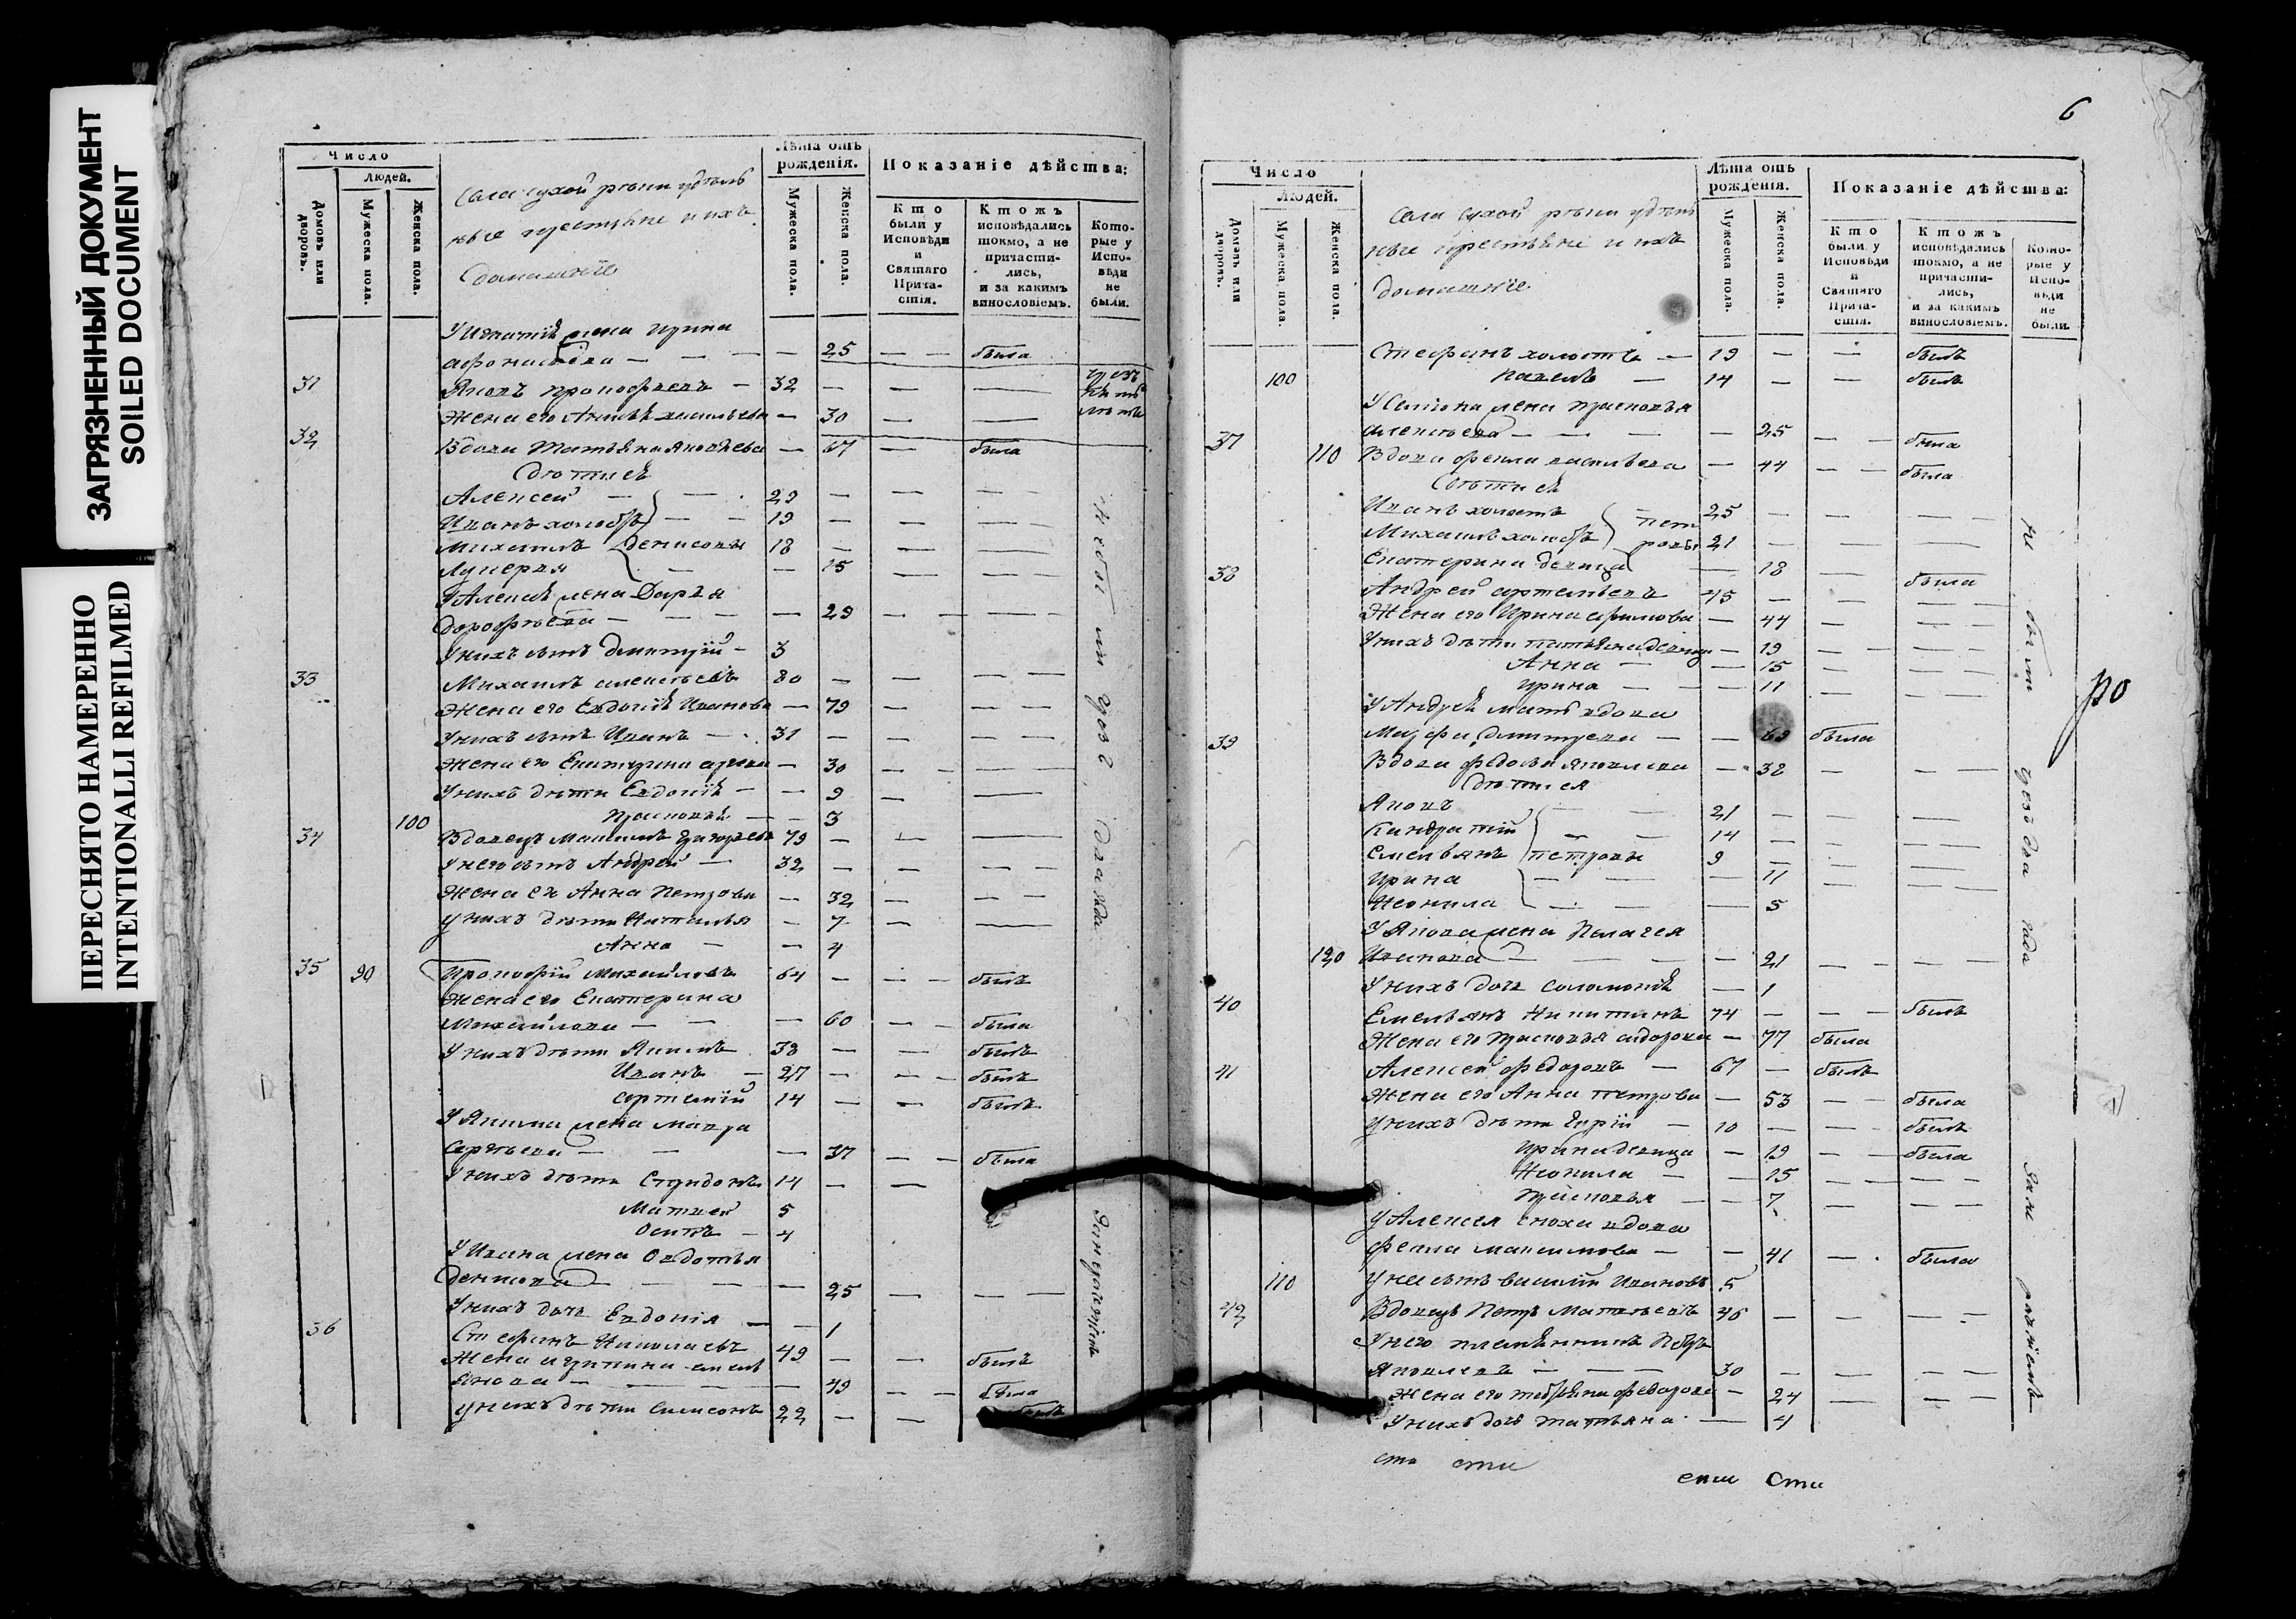 ЗАГРЯЗНЕННЫЙ ДОКУМЕНТ
SOILED DOCUMENT
ПЕРЕСНЯТО НАМЕРЕННО
INTENTIONALLI REFILMED
Число
Людей.
Домовъ или дворовъ.
Мужеска пола.
Женска пола.
Села сухой речки удель
ные крестьяне и ихъ
домашніе
Лѣта отъ рожденія.
Мужеска пола.
Женска пола.
Показаніе дѣйства:
Кто были у Исповѣди и Святаго Причастія.
Ктожъ исповѣдались токмо, а не причастились, и за какимъ винословіемъ.
Которые у Исповѣди не были.
У Игнатія жена Ирина
афонасьева — 25 — — была
31 Яковъ Прокофьевъ — 32 — —
Жена его васильева — 30 — —
32 Вдова Татьяна Яковлева — 67 — была
Дети ея
Алексей — 29 — — —
Иванъ холостъ — 19 — — —
Михаилъ Денисовы 18 — — —
Лукерья — 15 — — —
У Алексея жена Дарья
дорофѣева — 29 — — —
У нихъ сынъ Дмитрий — 3
33 Михаилъ алексѣевъ 80 — — —
Жена его Евдокія Иванова — 79 — — —
У нихъ сынъ Иванъ — 31 — — —
Жена его Екатерина — 30 — — —
У нихъ дети Евдокія — 9 — —
100 Прасковья — 3
34 Вдовецъ Григорьевъ 79 — — —
У него сынъ Андрей — 32 — — —
Жена ег Анна Петрова — 32 — — —
У нихъ дети Наталья — 7 — —
Анна — — 4
35 90 Прокофій Михайловъ 64 — — былъ
Жена его Екатерина
Михайлова — 60 — — была
У нихъ дети Якимъ 38 — — былъ
Иванъ — 27 — — былъ
артемій 14 — — былъ
У Якима жена Мавра
Сергѣева — — 37 — — была
У нихъ дети Спиридонъ 14 — —
Матвей 5
Осипъ — 4
У Ивана жена Авдотья
денисова — — 25 — — —
У нихъ дочь Евдокія — — 1
36 Стефанъ Николаевъ 49 — — былъ
Жена
49 — — была
У нихъ дети 22 — —
6
Число
Людей.
Домовъ или дворовъ.
Мужеска пола.
Женска пола.
Села сухой речки удель
ные крестьяне и ихъ
домашніе
Лѣта отъ рожденія.
Мужеска пола.
Женска пола.
Показаніе дѣйства:
Кто были у Исповѣди и Святаго Причастія.
Ктожъ исповѣдались токмо, а не причастились, и за какимъ винословіемъ.
Которые у Исповѣди не были.
Стефанъ холостъ — 19 — — былъ
100 Павелъ — 14 — — былъ
У жена Прасковья
алексѣева — — 25 — — была
37 110 Вдова фекла васильева — 44 — — была
Дети ея
Иванъ холостъ Пет 25 — — —
Михаилъ холостъ ровы 21 — — —
Екатерина девица — 18 — была
38 Андрей артемьевъ 45 — — —
Жена его Ирина — 44 — — —
У нихъ дети Татьяна девица — 19 — — —
Анна — — 15 — — —
Ирина — — 11 — — —
У Андрея мать вдова
Марфа Дмитрева — — 69 была
39 Вдова федосья Яковлева — 38 — — —
Дети ея
Яковъ — 21 — — —
Кандратій — 14 — — —
Емельянъ Петровы 9 — — —
Ирина — — 11 — — —
Неонила — — 5
У Якова жена Пелагея
120 Иванова — — 21 — — —
У нихъ дочь Соломонія — 1
40 Емельянъ Никитинъ 74 — — былъ
Жена его Прасковья сидорова — 77 была
41 Алексей федоровъ — 67 — былъ
Жена его Анна Петрова — 53 — — была
У нихъ дети — 10 — — былъ
Ирина девица — 19 — — была
Неонила — — 15 — — —
Прасковья — — 7 — — —
У Алексея сноха вдова
Фекла Максимова — — 41 — была
110 У нея сынъ василій Ивановъ 5
42 Вдовецъ Петръ Матвѣевъ 46 — — —
У него племянникъ Петръ
Яковлевъ — 30 — — —
Жена его федорова — 24 — — —
У нихъ дочь Татьяна — 4
ро